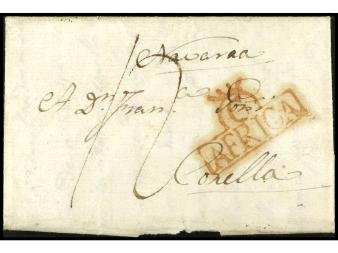 Navarra
A Dn. Fran.co
C
AFRICA
Corella